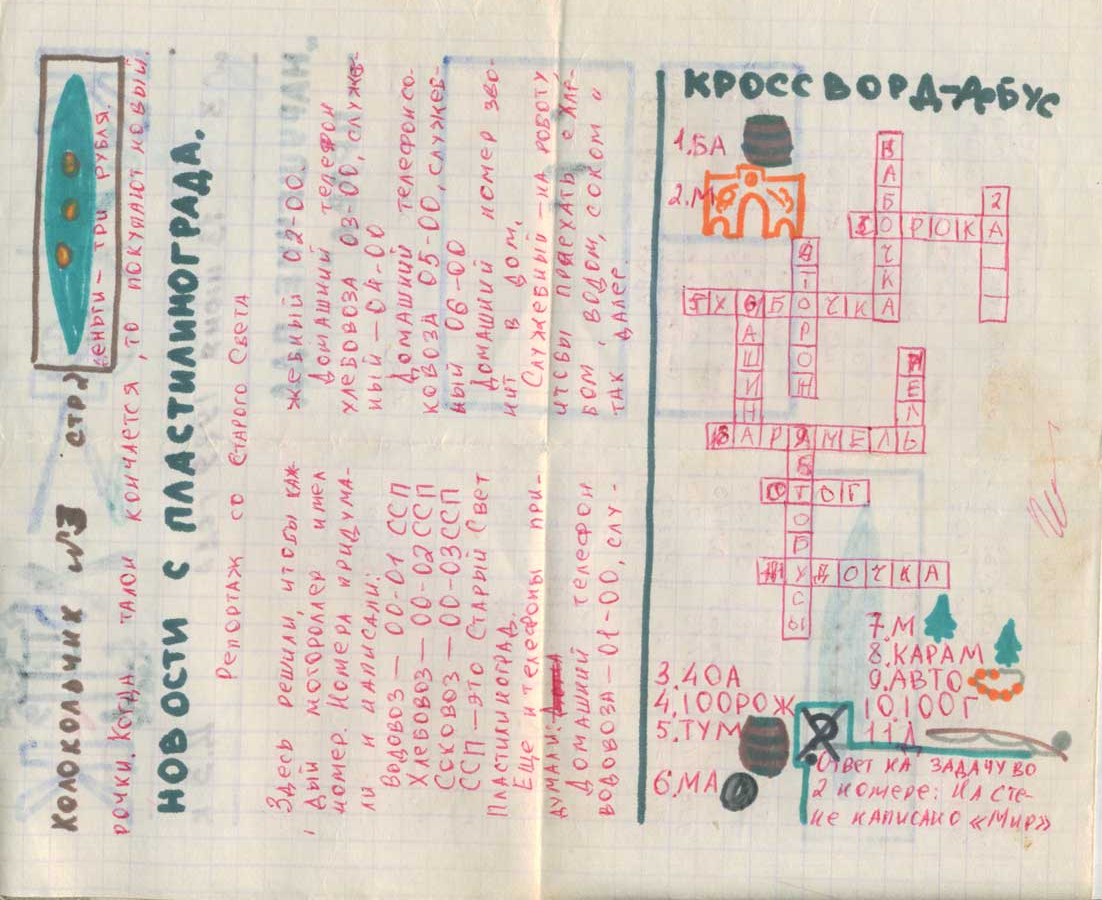 КОЛОКОЛЬЧИК №3 СТР2
еньги — три рубля.
рочки. Когда талон кончается, то покупают новый.
НОВОСТИ С ПЛАСТИЛИНОГРАДА.
Репортаж со Старого Света
Здесь решили, чтобы каж-
дый мотороллер имел
номер. Номера придума-
ли и написали:
Водовоз — 00-01 ССП
Хлебовоз — 00-02 ССП
Соковоз — 00-03 ССП
ССП — это Старый Свет
Пластилиноград.
Еще и телефоны при-
думали:
Домашний телефон
водовоза — 01-00, слу-
жебный 02-00.
Домашний телефон
хлебовоза 03-00, служе-
ный — 04-00
Домашний телефон со-
ковоза 05-00, служеб-
ный 06-00
Домашний номер зво-
нит в дом,
Служебный — на роботу,
чтобы приехать с хле-
бом, водой, соком и
так далее.
КРОССВОРД-РЕБУС
1. БА
2. М
3. 40А
4. 100РОЖ
5. ТУМ
6. МА
7. М
8. КАРАМ
9. АВТО
10. 100Г
11. Д
Ответ на задачу во
2 номере: На сте-
не написано «Мир»